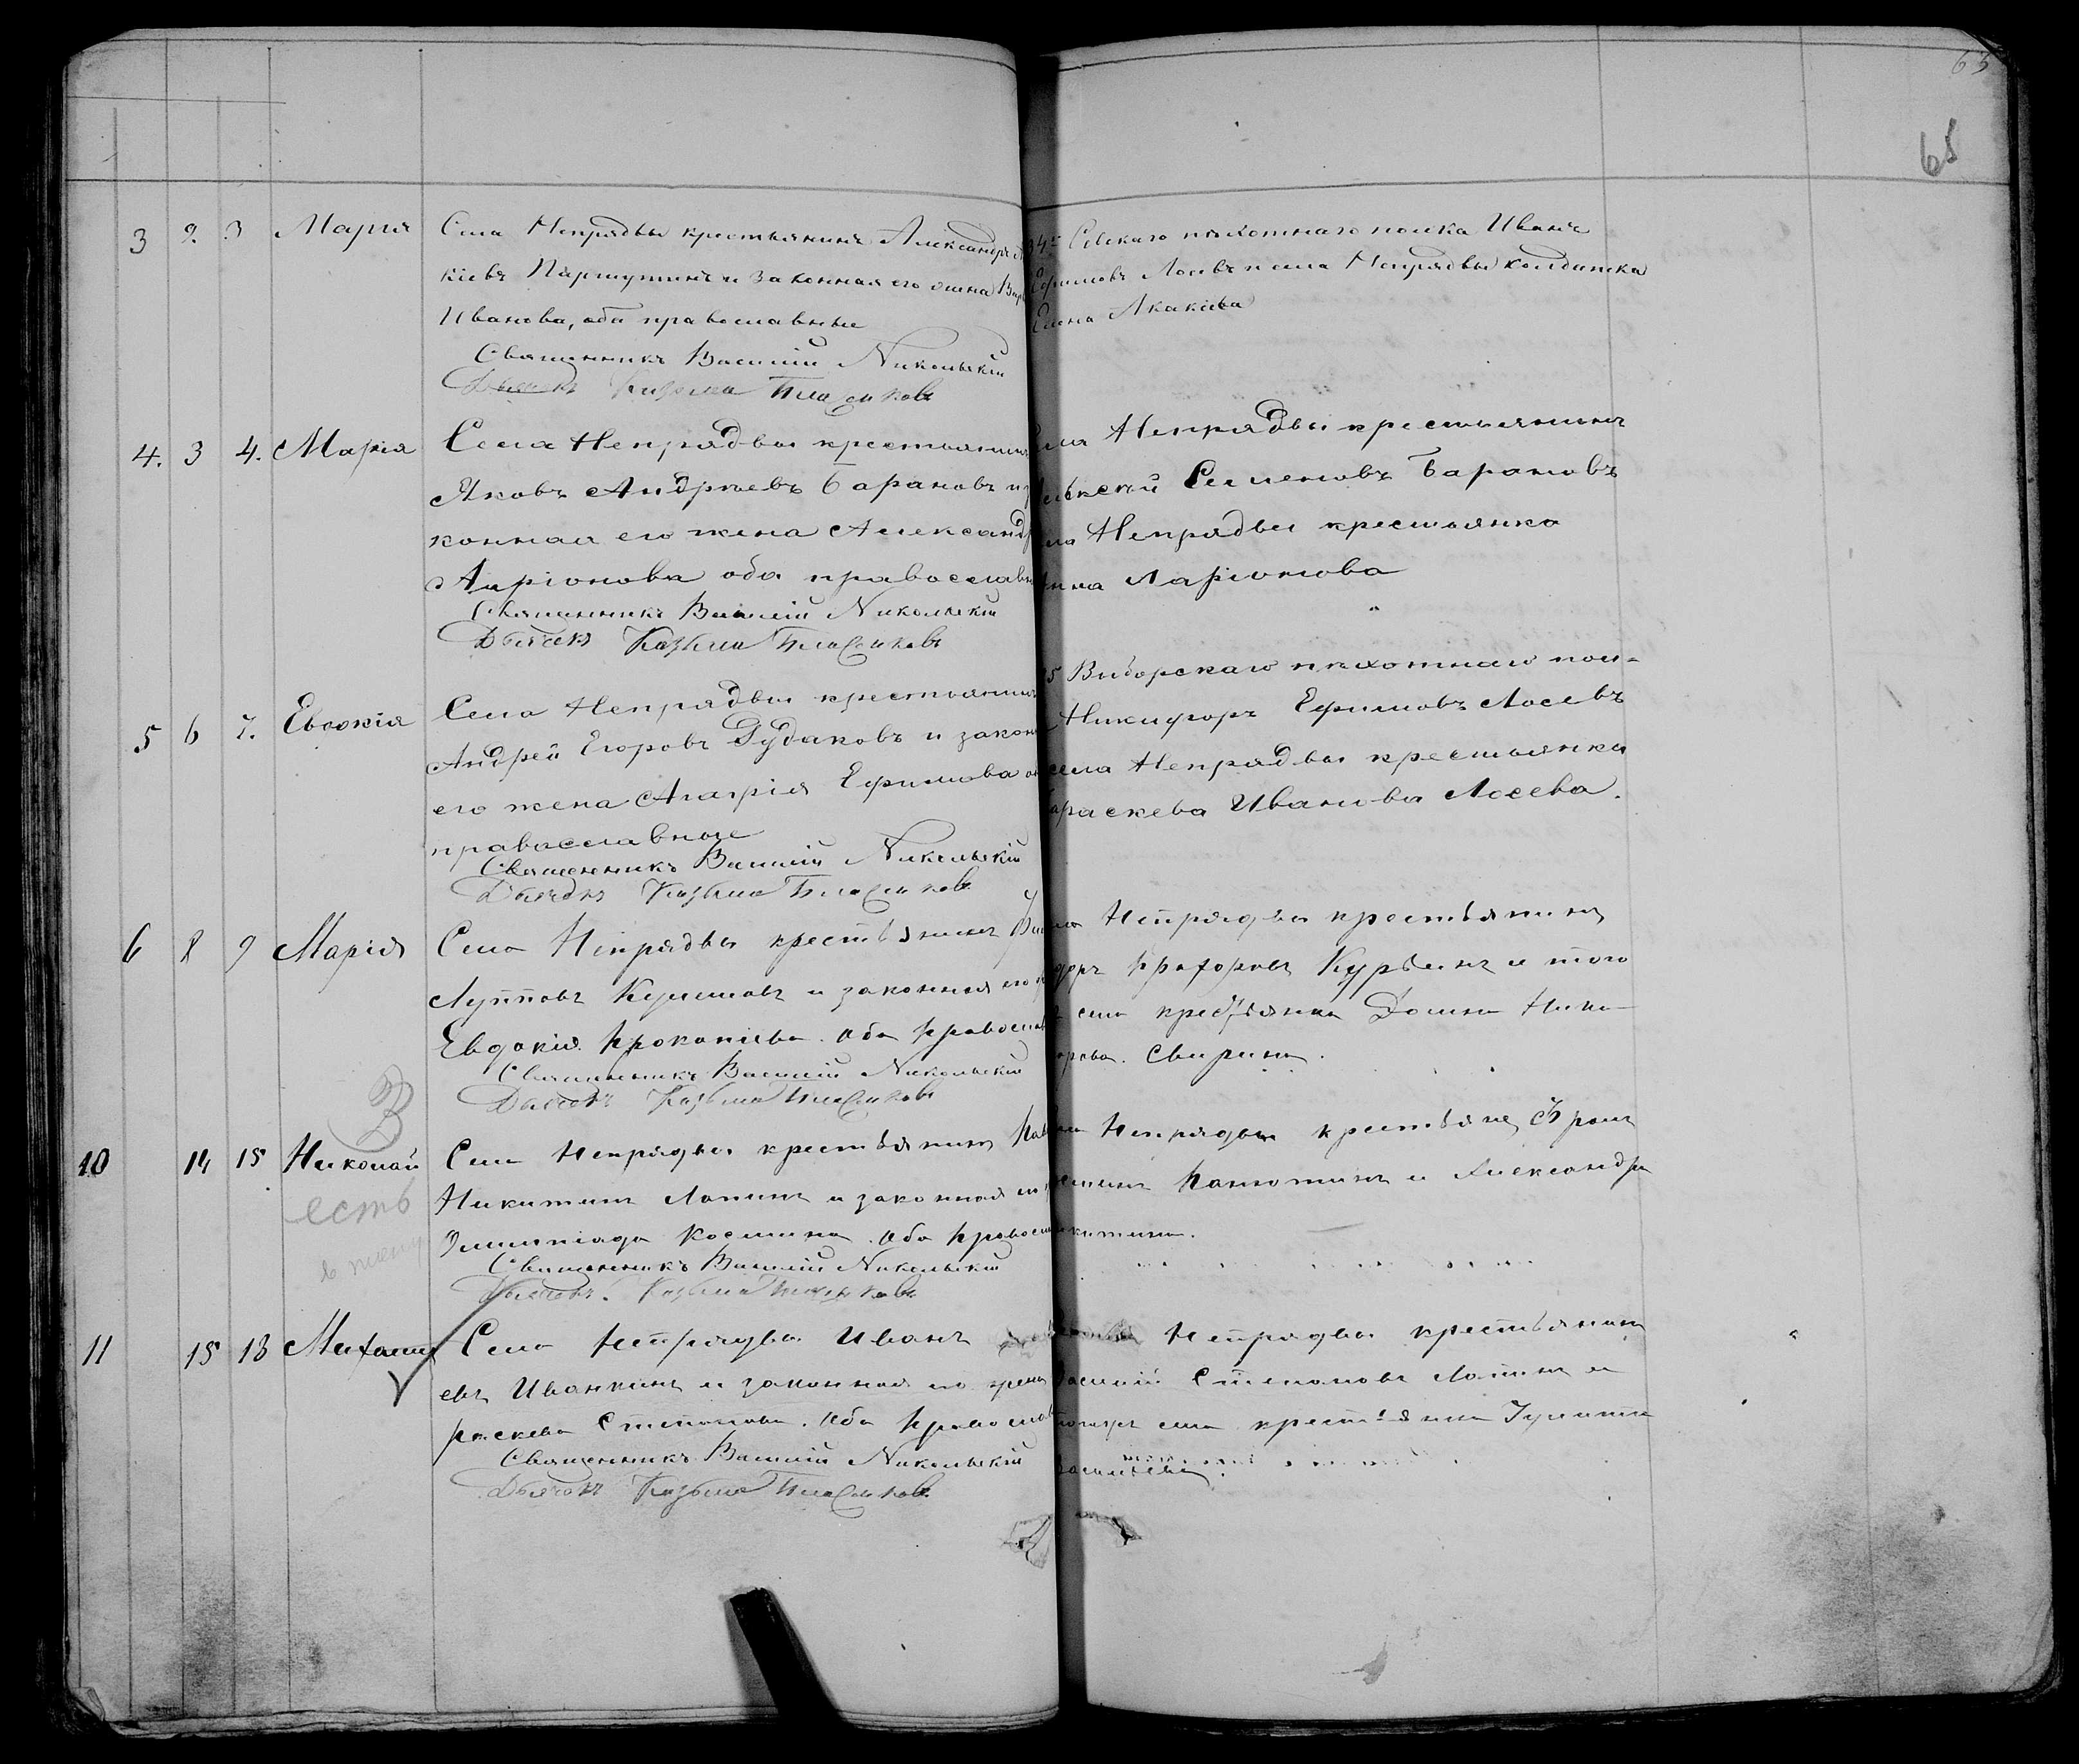 65
65
3 2. 3 Мария Села Непрядвы крестьянинъ Александръ
кіевъ Паршутинъ и законная его жена Вар
Иванова, оба православные
Священникъ Василій Никольскій
Дьячекъ Козьма
34го Севскаго пѣхотнаго полка Иванъ
Ефимовъ Лосевъ и села Непрядвы солдатка
Елена Акакіева
4. 3 4. Марія Села Непрядвы крестьянинъ
Яковъ Андреевъ Барановъ и за
конная его жена Александр
Ларіонова оба православн
Священникъ Василій Никольскій
Дьячекъ Козьма
Села Непрядвы крестьянинъ
лексѣй Семеновъ Барановъ
ла Непрядвы крестьянка
Анна Ларіонова
5 6 7. Евдокія Села Непрядвы крестьянинъ
Андрей Егоровъ Рудаковъ и закон
его жена Агафія Ефимова об
православные
Священникъ Василій Никольскій
Дьячекъ Козьма
85 Выборскаго пѣхотнаго пол-
Никифоръ Ефимовъ Лосевъ
села Непрядвы крестьянка
араскева Иванова Лосева.
6 8 9 Марія Села Непрядвы крестьянинъ
Лупповъ и законная его
Евдокія Прокопіева. Оба православ
Священникъ Василій Никольскій
Дьячекъ Козьма
ла Непрядвы крестьянинъ
доръ Курбинъ и того
села крестьянка Домна Ники-
орова. Свирина.
10 14 15 Николай Села Непрядвы крестьянинъ Пав
Никитинъ Лапинъ и законная его
Олимпіада Космина. Оба православ
Священникъ Василій Никольскій
Дьячекъ. Козьма
В
есть
ла Непрядвы крестьяне
Панютинъ и Александра
икитина.
11 15 18 Михаилъ Села Непрядвы Иванъ
евъ Иванкинъ и законная его жена
раскева Степанова. Оба православ
Священникъ Василій Никольскій
Дьячекъ Козьма
Непрядвы крестьянинъ
Василій Степановъ Лапинъ и
тогожъ села крестьянка Улита
Васильева.